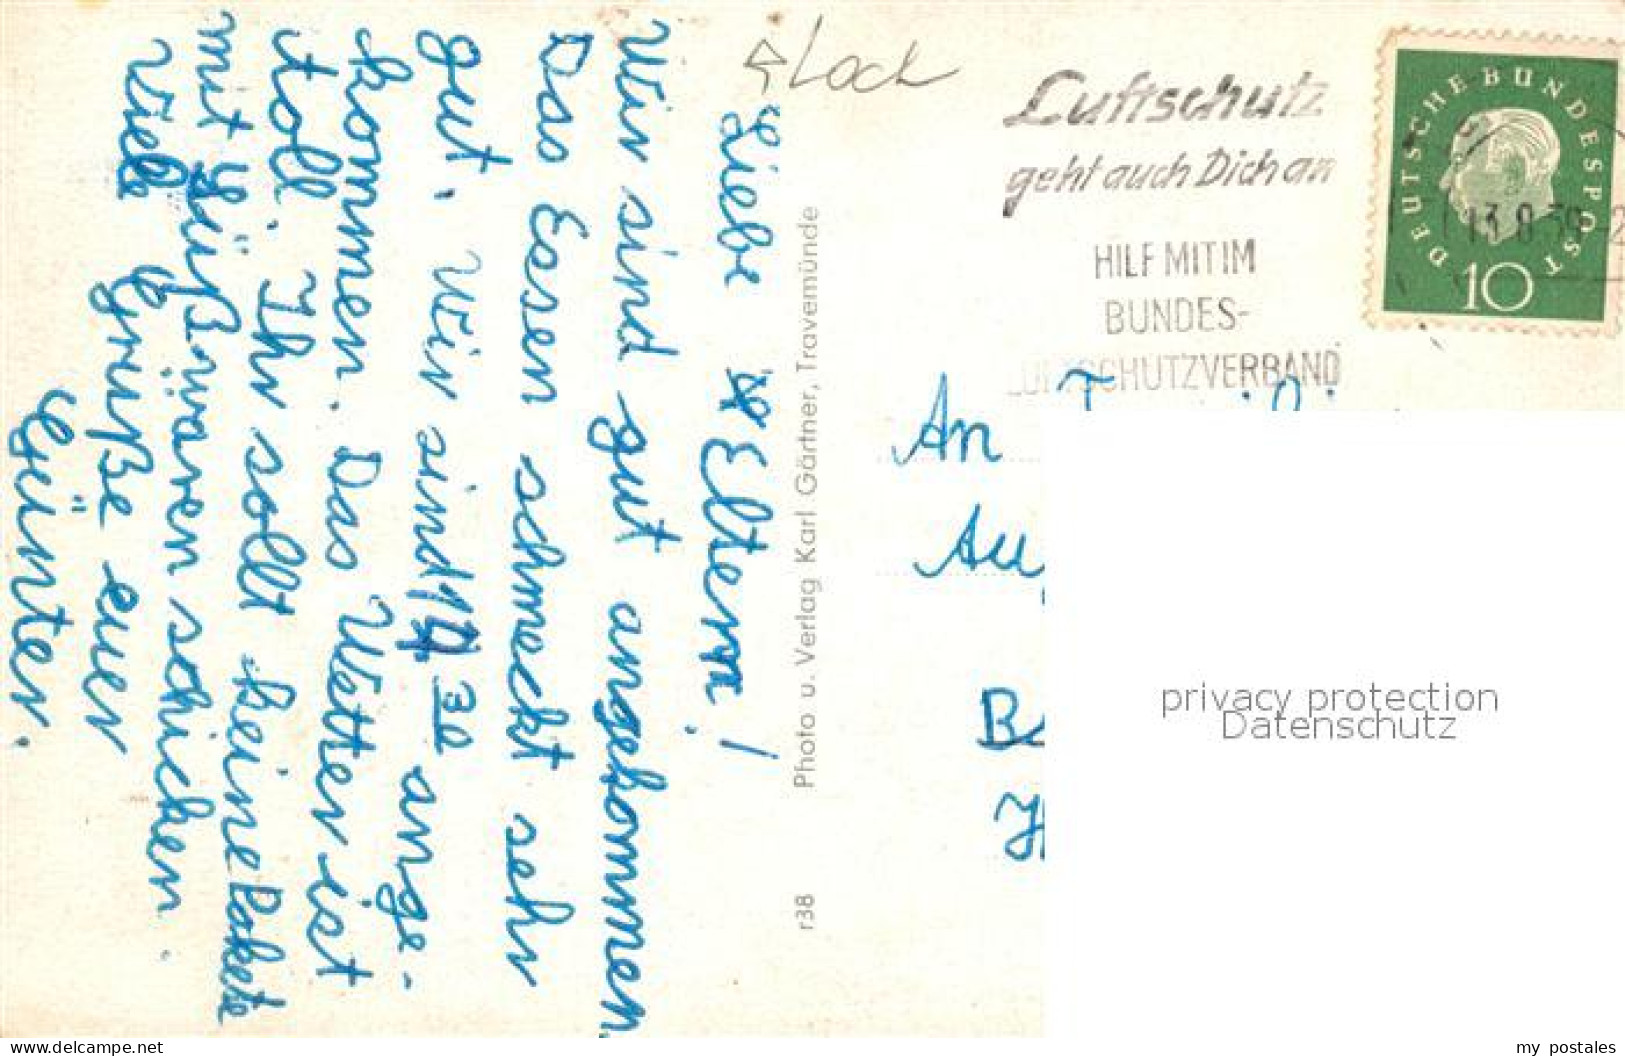 Lock
Liebe Eltern!
Wir sind gut angekommen
Das Essen schmeckt sehr
gut. Wir sind 17 30 ange-
kommen. Das Wetter ist
toll. Ihr sollt keine Pakete
mit Süßwaren schicken.
Viele Grüße euer
Günter.
r38 Photo u. Verlag Karl Gärtner, Travemünde
Luftschutz
geht auch Dich an
HILF MIT IM
BUNDES-
LUFTSCHUTZVERBAND
DEUTSCHE BUNDESPOST
10
An
privacy protection
Datenschutz
my postales
www.delcampe.net